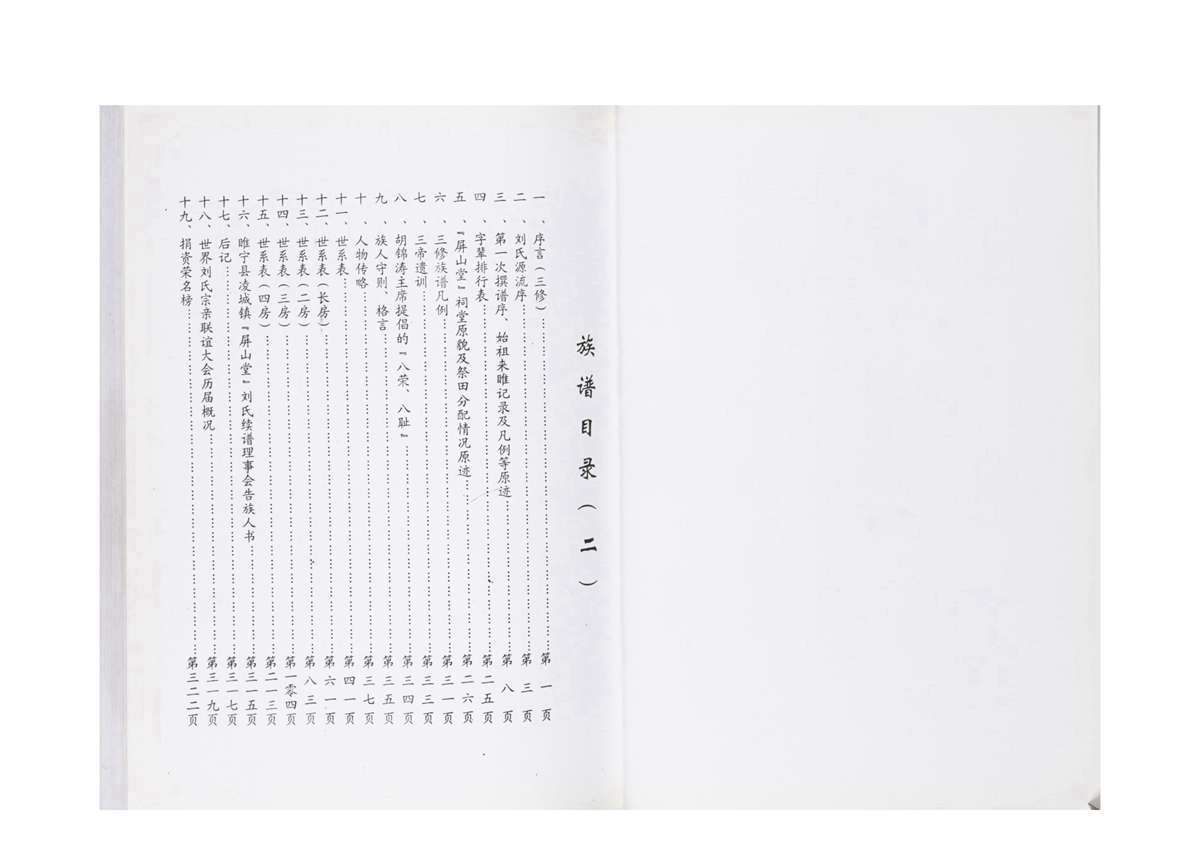 族谱目录（二）
一、序言（三修）……第一页
二、刘氏源流序……第三页
三、第一次撰谱序、始祖来睢记录及凡例等原迹……第八页
四、字辈排行表……第二五页
五、『屏山堂』祠堂原貌及祭田分配情况原迹……第二六页
六、三修族谱凡例……第三一页
七、三帝遗训……第三三页
八、胡锦涛主席提倡的『八荣、八耻』……第三四页
九、族人守则、格言……第三五页
十、人物传略……第三七页
十一、世系表……第四一页
十二、世系表（长房）……第六一页
十三、世系表（二房）……第八三页
十四、世系表（三房）……第一零四页
十五、世系表（四房）……第二一三页
十六、睢宁县凌城镇『屏山堂』刘氏续谱理事会告族人书……第三一五页
十七、后记……第三一七页
十八、世界刘氏宗亲联谊大会历届概况……第三一九页
十九、捐资荣名榜……第三二二页